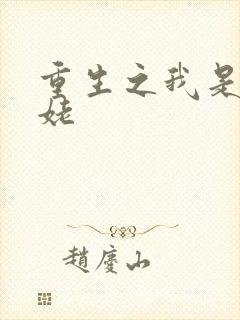 重生之我是
姥
趙慶山